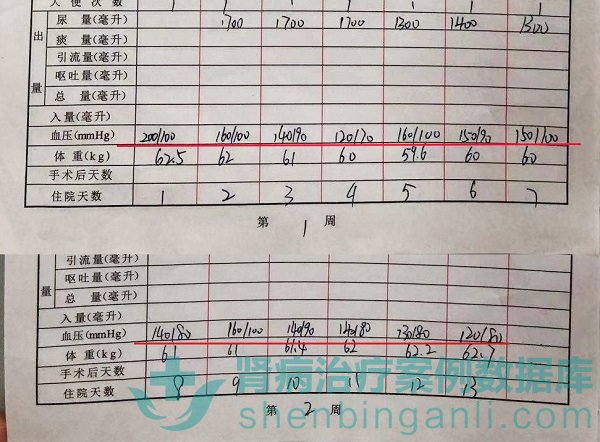 大便次数 1 1 1 1 1 1 1
出 尿 量(毫升) 1700 1700 1700 1300 1400 1300
痰 量(毫升)
引流量(毫升)
呕吐量(毫升)
量 总 量(毫升)
入量(毫升)
血压(mmHg) 200/100 160/100 140/90 120/70 160/100 150/90 150/100
体 重(kg) 62.5 62 61 60 59.6 60 60
手术后天数
住院天数 1 2 3 4 5 6 7
第 1 周
引流量(毫升)
呕吐量(毫升)
量 总 量(毫升)
入量(毫升)
血压(mmHg) 140/80 160/100 140/90 140/80 130/80 120/80
体 重(kg) 61 61 61.4 62 62.2 62.7
手术后天数
住院天数 8 9 10 11 12 13
第 2 周
肾病治疗案例数据库
shenbinganli.com